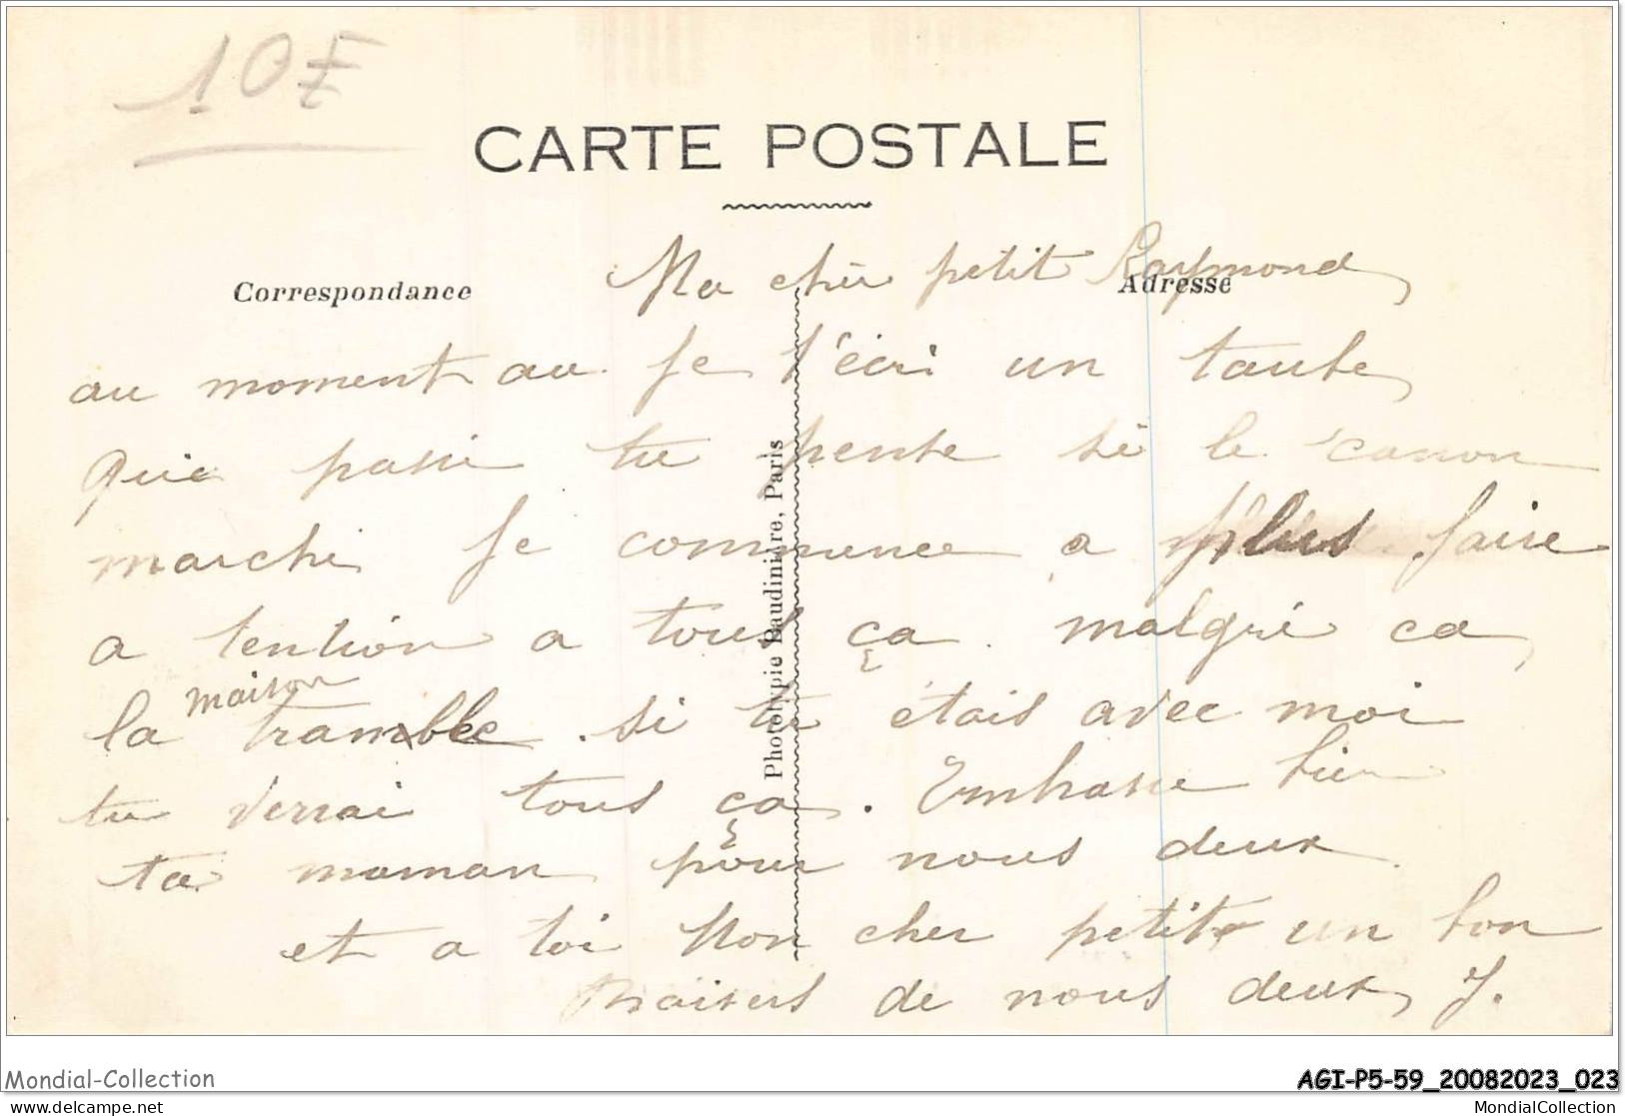 10F
CARTE POSTALE
Correspondance
Adresse
Ma cher petit Raymond
au moment au je t'écri un taube
que passe tu pense si le canon
marche je commence a plus faire
a tention a tous ça. malgré ca
la maison tramble. si tu étais avec moi
tu verrai tous ça. Embrasse bien
ta maman pour nous deux
et a toi Mon cher petit un bon
de nous deux J.
Phototypie Baudinière, Paris
Mondial-Collection
AGI-P5-59_20082023_023
delcampe.net
MondialCollection